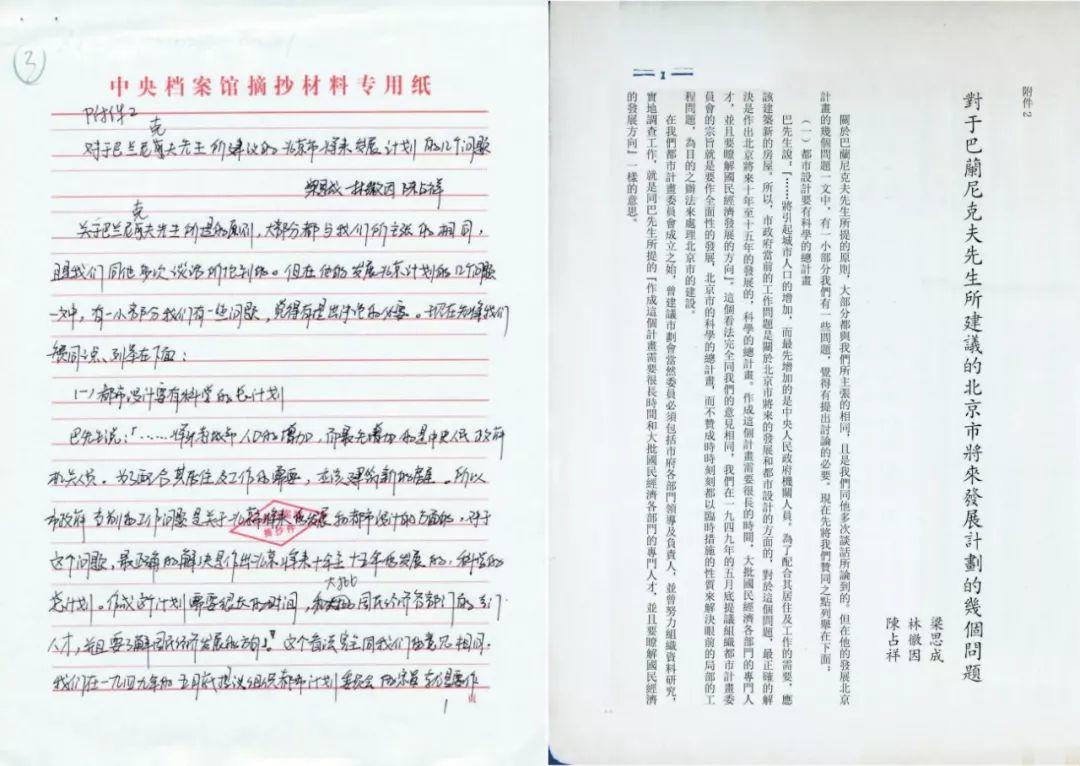 3
中央档案馆摘抄材料专用纸
附件2
克
对于巴兰尼夫先生所建议的北京市将来发展计划的几个问题
梁思成 林徽因 陈占祥
克
关于巴兰尼夫先生所提的原则，大部分都与我们所主张的相同，
且是我们同他多次谈话所论到的。但在他的发展北京计划的几个问题
一文中，有一小部分我们有一些问题，觉得有提出讨论的必要。现在先将我们
赞同之点、列举在下面：
（一）都市设计要有科学的总计划
巴先生说：「……将引起城市人口的增加，而最先增加的是中央人民政府
机关人员。为了配合其居住及工作的需要，应该建筑新的房屋。所以
市政府当前的工作问题是关于北京将来的发展和都市设计的方面的，对于
这个问题，最正确的解决是作出北京将来十年至十五年的发展的，科学的
大批
总计划。作成这个计划需要很长的时间，和国民经济各部门的专门
人才，并且要了解国民经济发展的方向』这个看法完全同我们的意见相同，
我们在一九四九年的五月底提议组织都市计划委员会的宗旨就是要作
1
页
附件2
對于巴蘭尼克夫先生所建議的北京市將來發展計劃的幾個問題
梁思成
林徽因
陳占祥
關於巴蘭尼克夫先生所提的原則，大部分都與我們所主張的相同，且是我們同他多次談話所論到的。但在他的發展北京
計畫的幾個問題一文中，有一小部分我們有一些問題，覺得有提出討論的必要。現在先將我們贊同之點列舉在下面：
（一）都市設計要有科學的總計畫
巴先生說，『……將引起城市人口的增加，而最先增加的是中央人民政府機關人員。為了配合其居住及工作的需要，應
該建築新的房屋。所以，市政府當前的工作問題是關於北京市將來的發展和都市設計的方面的，對於這個問題，最正確的解
決是作出北京將來十年至十五年的發展的，科學的總計畫。作成這個計畫需要很長的時間，大批國民經濟各部門的專門人
才，並且要瞭解國民經濟發展的方向』。這個看法完全同我們的意見相同，我們在一九四九年的五月底提議組織都市計畫委
員會的宗旨就是要作全面性的發展，北京市的科學的總計畫，而不贊成時時刻刻都以臨時措施的性質來解決眼前的局部的工
程問題，為目的之辦法來處理北京市的建設。
在我們都市計畫委員會成立之始，曾建議市劃會當然委員必須包括市府各部門領導及負責人，並曾努力組織資料研究，
實地調查工作，就是同巴先生所提的『作成這個計畫需要很長時間和大批國民經濟各部門的專門人才，並且要瞭解國民經濟
的發展方向』一樣的意思。
1